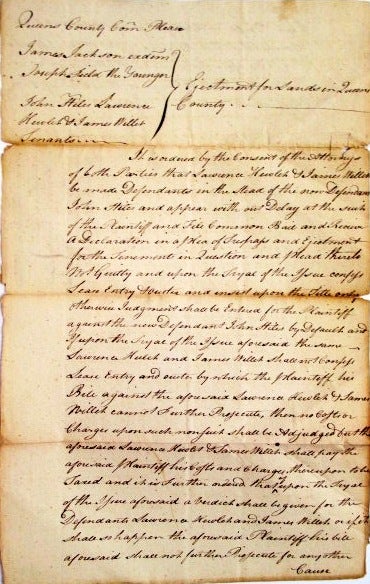 Queens County Com Pleas
James Jackson ex dem
Joseph Field the Younger
Ejectment for Lands in Queens
County
John Stiles Lawrence
Hewlet & James Willet
Tenants
It is ordered by the Consent of the Attorneys
of both Parties that Lawrence Hewlet & James Willet
be made Defendants in the Stead of the now Defendant
John Stiles and appear with out Delay at the suite
of the Plaintiff and File Common Bail and Receive
A Declaration in a Plea of Trespass and Ejectment
for the Tenements in Question and Plead thereto
Not Guilty and upon the Tryal of the Issue confess
Lease Entry & Ouster and insist upon the Title only
otherwise Judgment shall be Entered for the Plaintiff
against the now Defendant John Stiles by Default and
If upon the Tryal of the Issue aforesaid the same
Lawrence Hewlet and James Willet Shall not Confess
Lease Entry and ouster by which the Plaintiff his
Bill against the aforesaid Lawrence Hewlet & James
Willet cannot Further Prosecute, then no Costs or
Charges upon such nonsuit shall be Adjudged but the
aforesaid Lawrence Hewlet & James Willet shall pay the
aforesaid Plaintiff his Costs and Charges thereupon to be
Taxed and it is Further ordered that if upon the Tryal
of the Issue aforesaid a Verdict shall be given for the
Defendants Lawrence Hewlet and James Willet or if it
shall so happen the aforesaid Plaintiff his bill
aforesaid shall not further Prosecute for any other
Cause